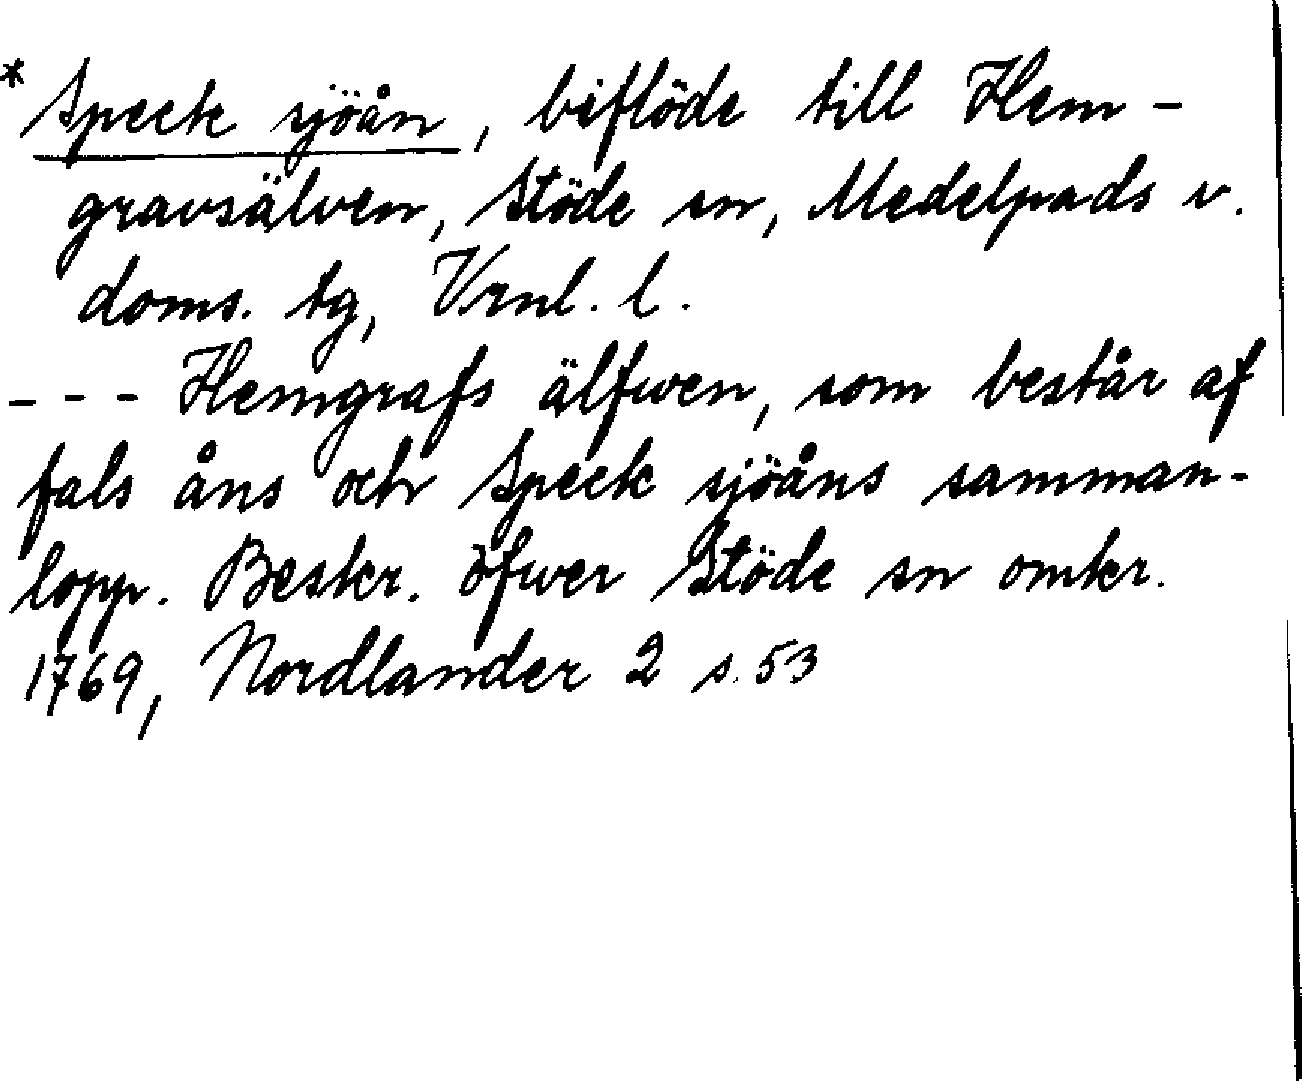 * Speck sjöån, biflöde till Hem-
gravsälven, Stöde sn, Medelpads v.
doms. tg, Vrnl. l.
- - - Hemgrafs älfwen, som består af
fals åns och Speck sjöåns samman-
lopp. Beskr. öfwer Stöde sn omkr.
1769, Nordlander 2 s. 53